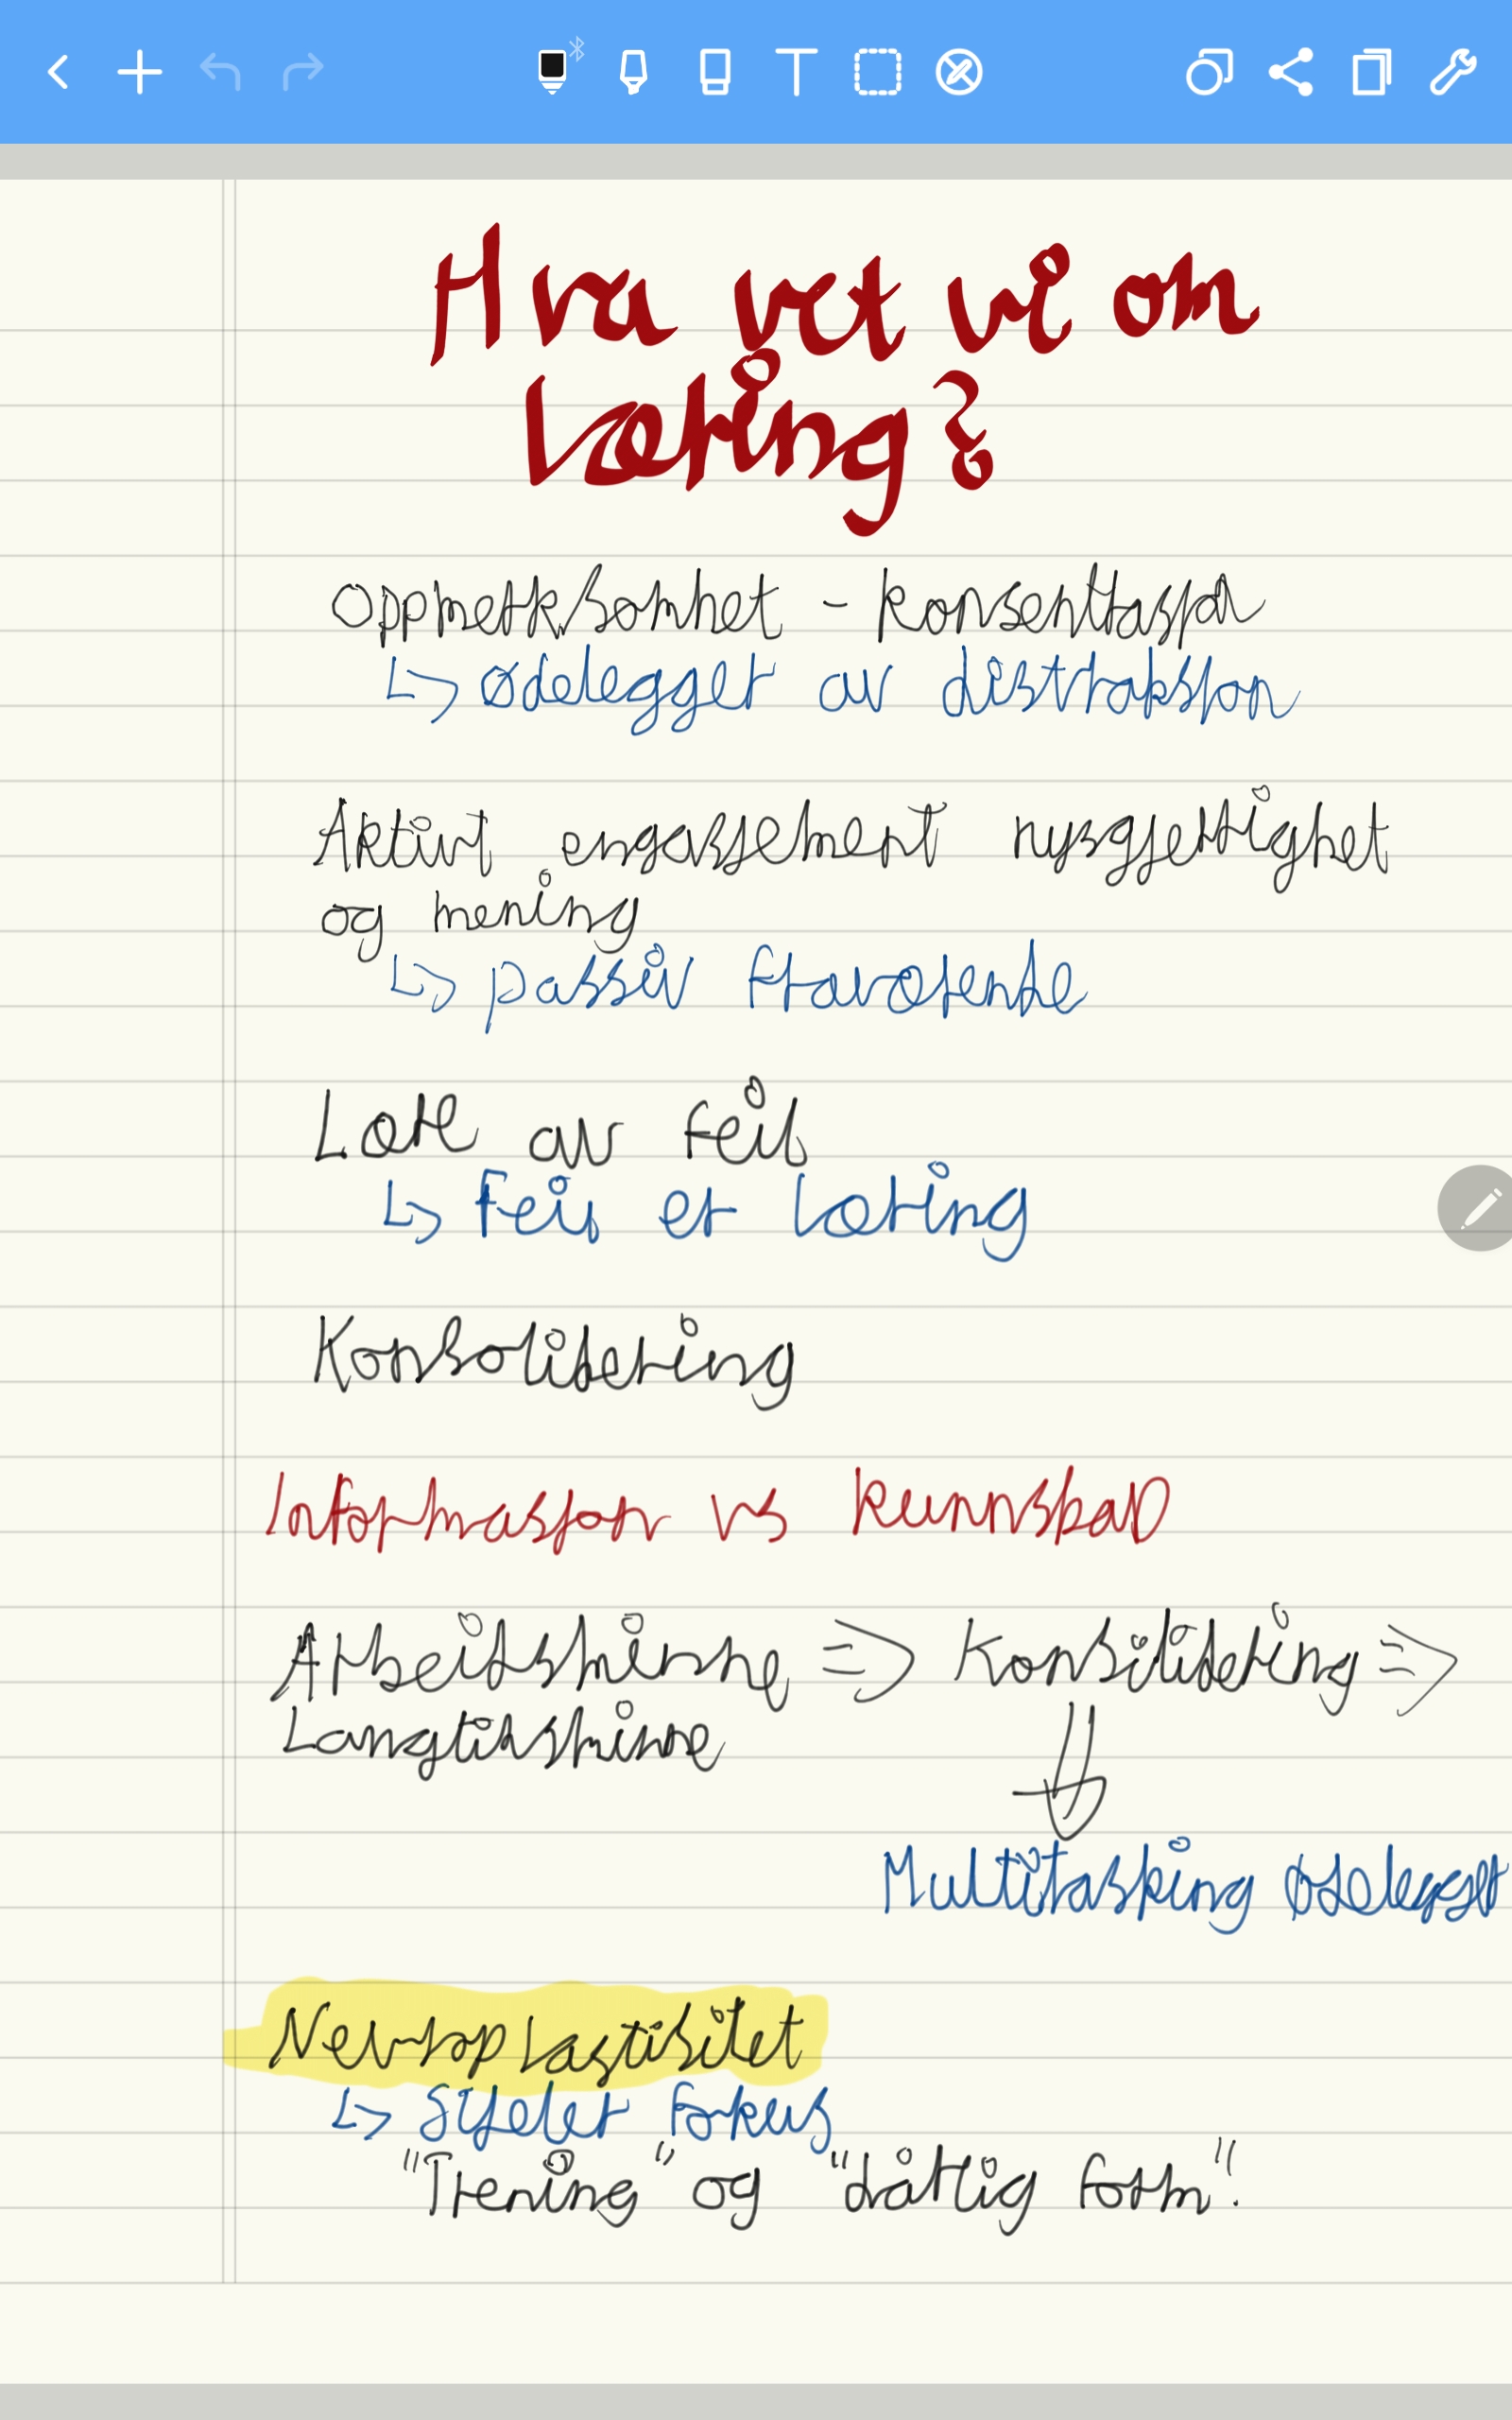 Hva vet vi om
læring?
Oppmerksomhet - konsentrasjon
↳ ødelegger av distraksjon
Aktivt engasjement nysgjerrighet
og mening
↳ passiv fraværende
Lære av feil
↳ Feil er læring
Konsolidering
Informasjon vs kunnskap
Arbeidsminne ⇒ Konsilidering ⇒
Langtidsminne
⇓
Multitasking ødelegger
Nevroplastisitet
↳ Sjeler fokus
"Trening" og "dårlig form".